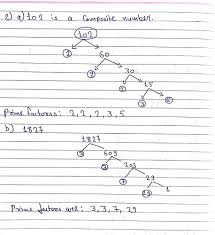 2) a) 102 is a composite number.
102
2
60
2
30
2
15
3
5
Prime Factors: 2, 2, 2, 3, 5
b) 1827
1827
3
609
3
203
7
29
29
1
Prime factors are: 3, 3, 7, 29